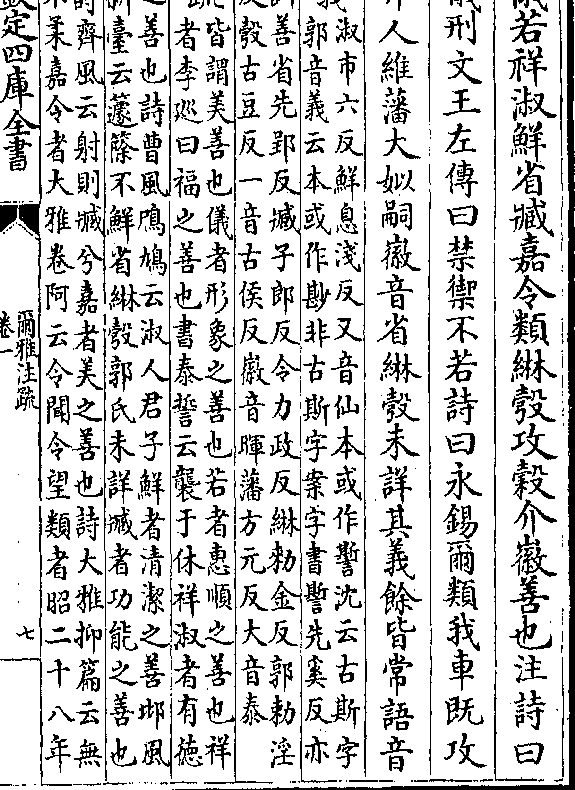 儀若祥淑鮮省臧嘉令類綝彀攻穀介徽善也注詩曰
儀刑文王左傳曰禁禦不若詩曰永錫爾類我車既攻
介人維藩大姒嗣徽音省綝彀未詳其義餘皆常語音
淑市六反鮮息淺反又音仙本或作誓沈云古斯字
郭音義云本或作尠非古斯字案字書誓先奚反亦
訓善省先郢反臧子郎反令力政反綝勅金反郭勅淫
反彀古豆反一音古侯反徽音暉藩方元反大音泰
疏皆謂美善也儀者形象之善也若者惠順之善也祥
者李巡曰福之善也書泰誓云襲于休祥淑者有德
之善也詩曹風鳲鳩云淑人君子鮮者清潔之善邶風
新臺云籧篨不鮮省綝彀郭氏未詳臧者功能之善也
詩齊風云射則臧兮嘉者美之善也詩大雅抑篇云無
不柔嘉令者大雅卷阿云令聞令望類者昭二十八年
欽定四庫全書
爾雅注疏
卷一
七